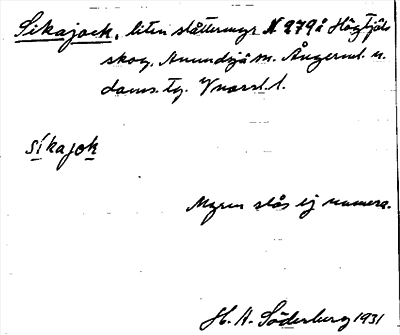 Sikajock, liten slåttermyr N 979 å Högtjäls
skog, Anundsjä m. Ångerml. n.
doms. tg. Vnorrl. l.
sikajok
Myren slås ej numera.
H. A. Söderberg 1931